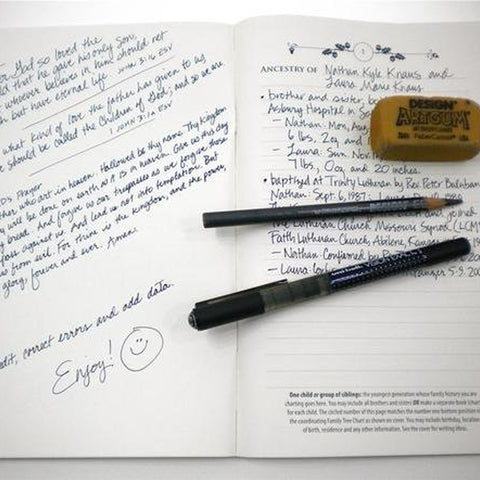 God so loved the
that he gave his only Son,
whoever believes in him should not
but have eternal life JOHN 3:16 ESV
what kind of love the father has given to us,
we should be called the Children of God; and so we are
1 JOHN 3:1a ESV
Prayer
who art in heaven. Hallowed be thy name. Thy Kingdom
will be done on earth as it is in heaven. Give us this day
bread. And forgive us our trespasses as we forgive those
against us. And lead us not into temptation. But
us from evil. For thine is the kingdom, and the power,
glory, forever and ever. Amen.
edit, correct errors and add data.
Enjoy!
1
ANCESTRY OF Nathan Kyle Knaus and
Laura Marie Knaus
• brother and sister, b
Asbury Hospital in S
– Nathan: Mon, Aug
6 lbs, 2 oz, and
– Laura: Sun, No
7 lbs, 0 oz, and 20 inches.
• baptized at Trinity Lutheran by Rev. Peter
Nathan: Sept. 6, 1987;
and joined
The Lutheran Church Missouri Synod (LCMS)
Faith Lutheran Church, Abilene, Kansas
– Nathan: Confirmed by
– Laura: 5-9-200
DESIGN
ARTGUM
FaberCastell
One child or group of siblings: the youngest generation whose family history you are
charting goes here. You may include all brothers and sisters OR make a separate book (chart)
for each child. The circled number of this page matches the number one buttons position in
the coordinating Family Tree Chart as shown on cover. You may include birthday, location
of birth, residence and any other information. See the cover for writing ideas.